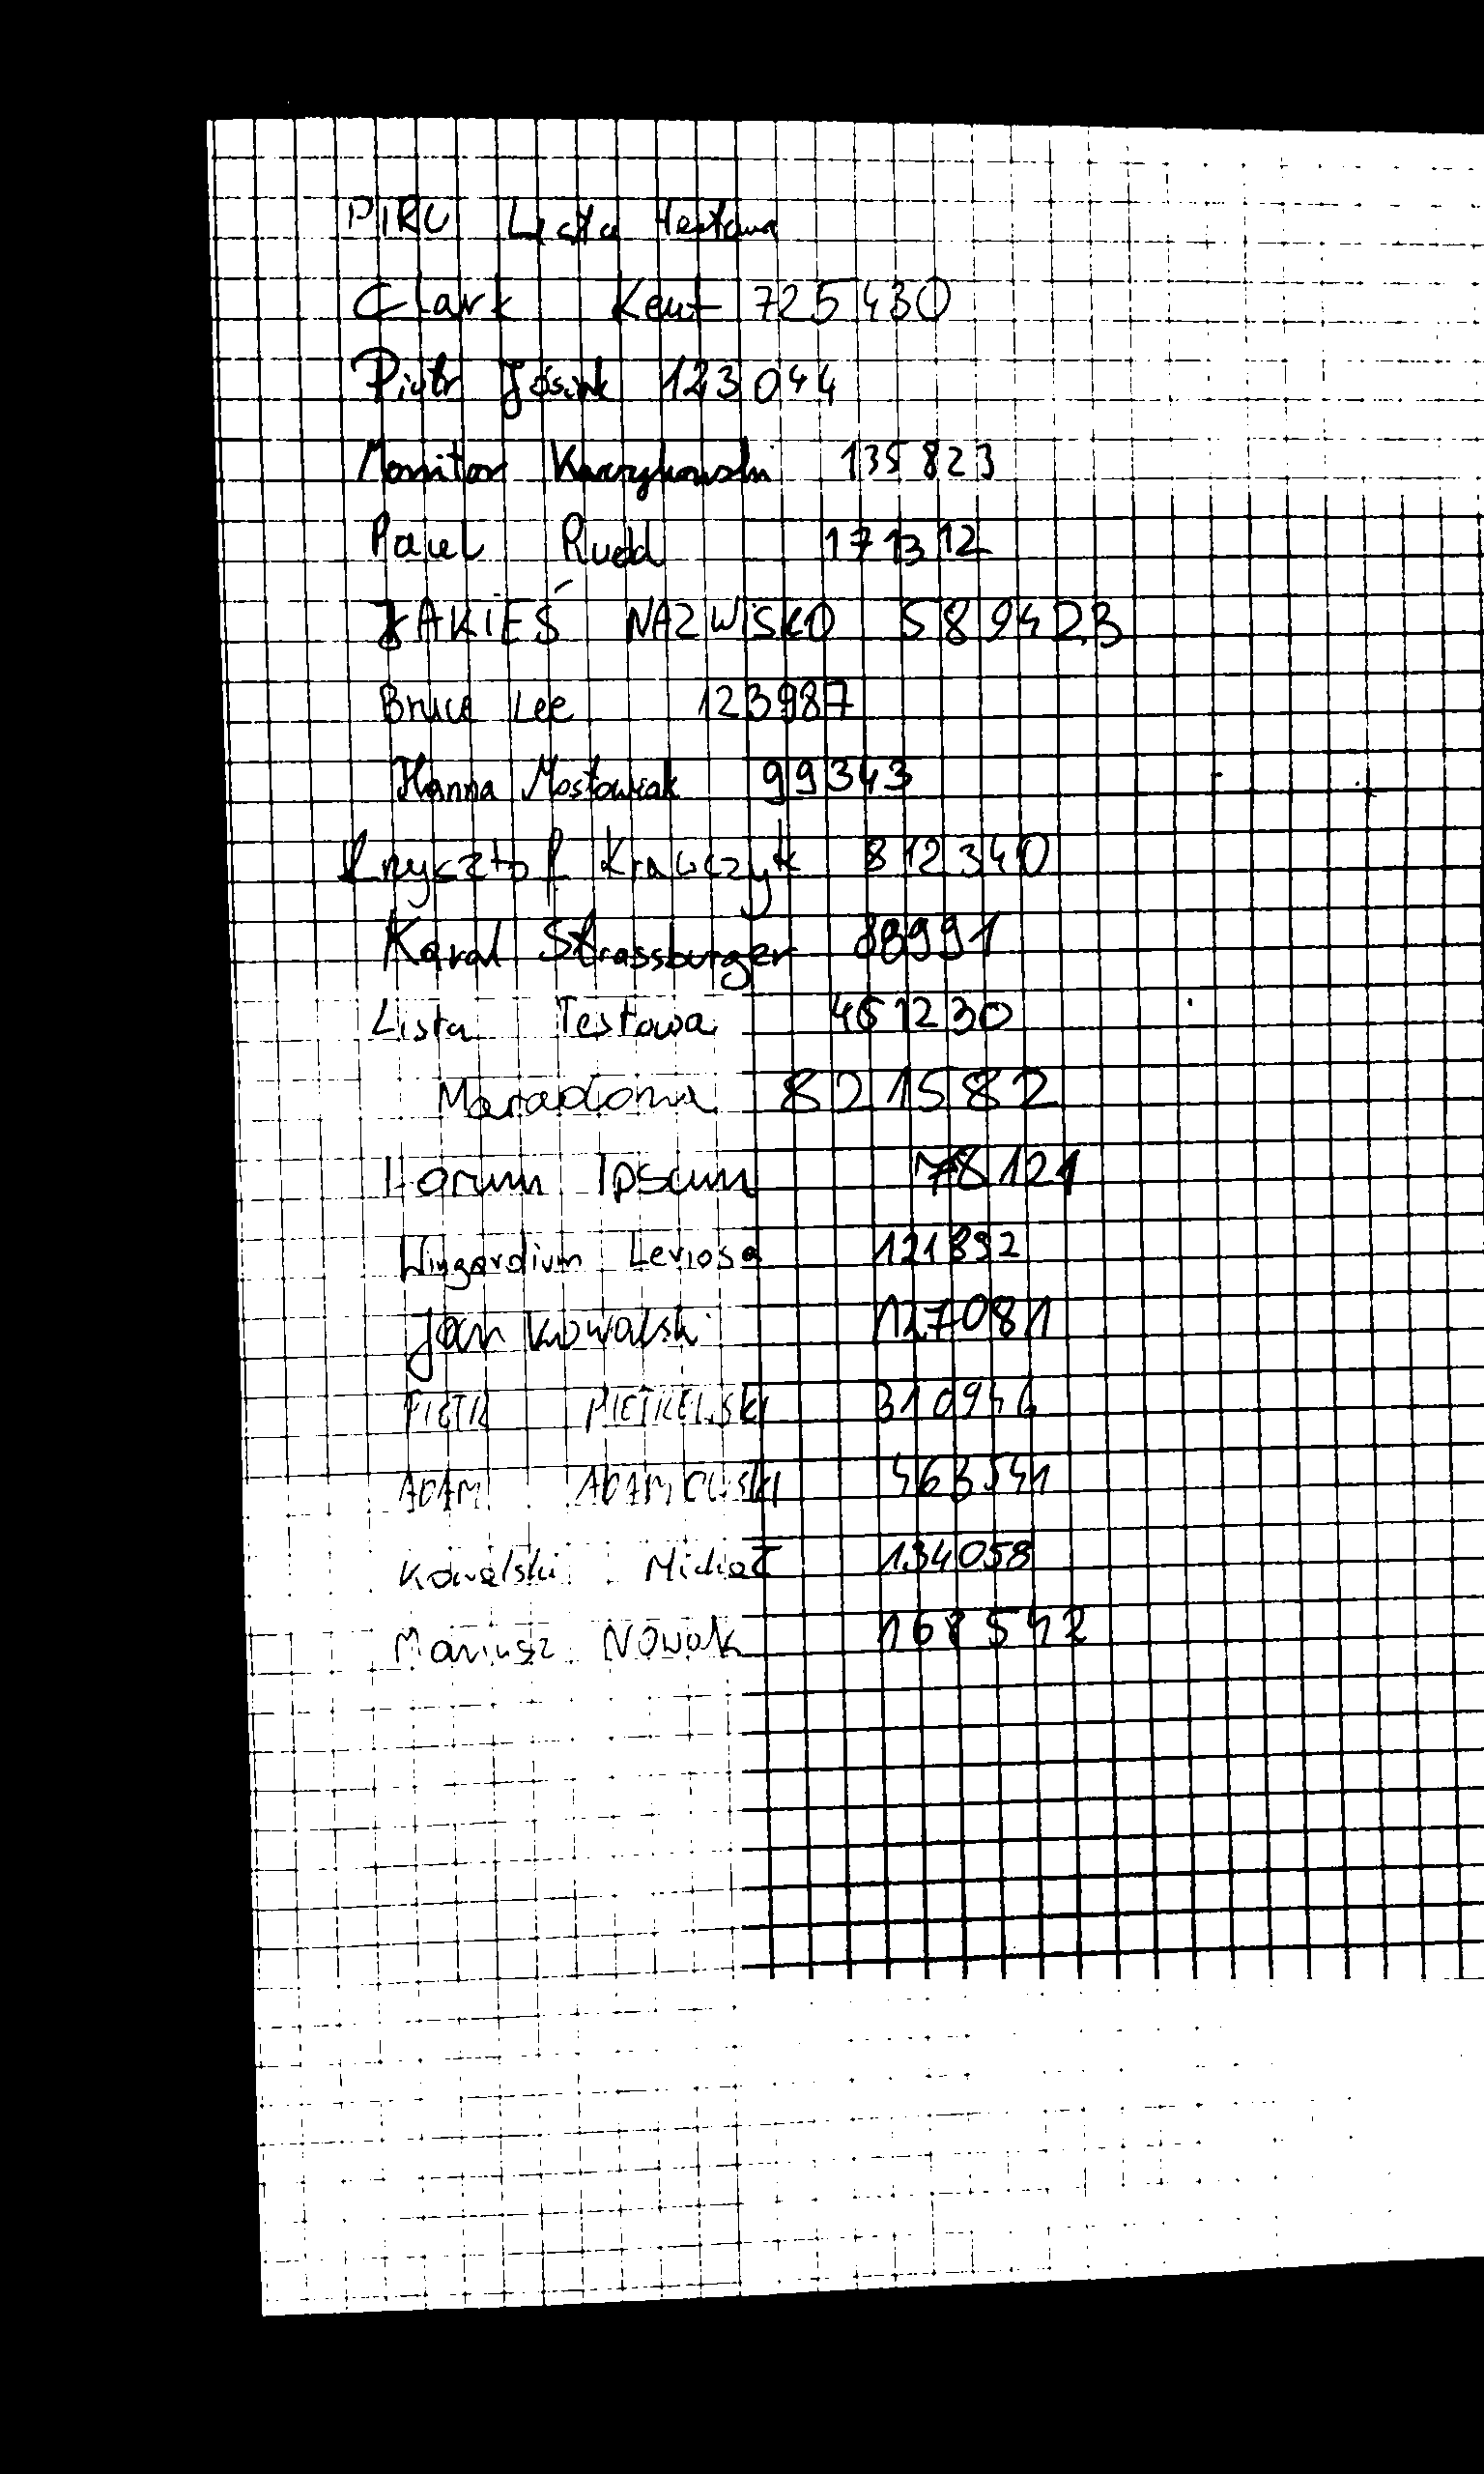 PIRO Lista testowa
Clark Kent 725430
Piotr Jósiak 123044
Monitor Kaczykowski 135823
Paul Rudd 171312
JAKIEŚ NAZWISKO 589423
Bruce Lee 123987
Hanna Mostowiak 99343
Krzysztof Krawczyk 812340
Karol Strassburger 88991
Lista Testowa 461230
Maradona 821582
Lorum Ipsum 78121
Wingardium Leviosa 121892
Jan Kowalski 127081
PIOTR PIETREWSKI 310946
ADAM ADAMOWSKI 463541
Kowalski Michał 134058
Mariusz Nowak 168542